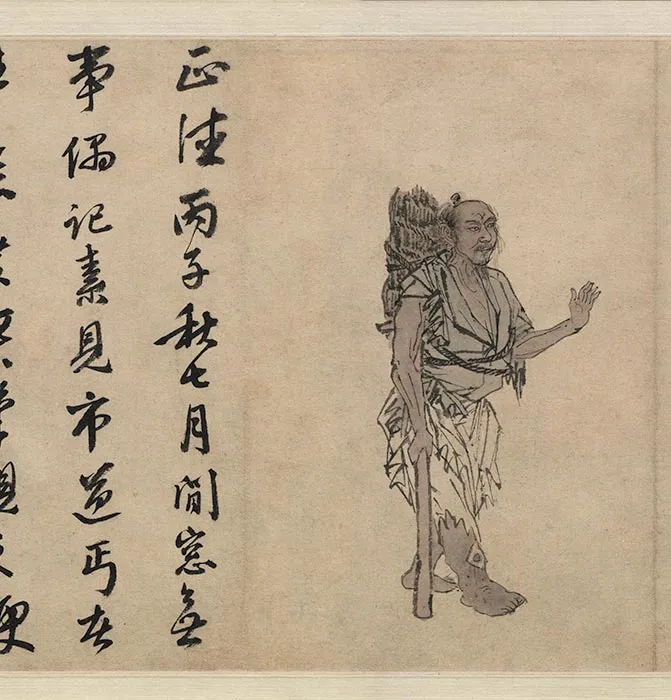 正德丙子秋七月閒窓無
事偶記素見市道丐者